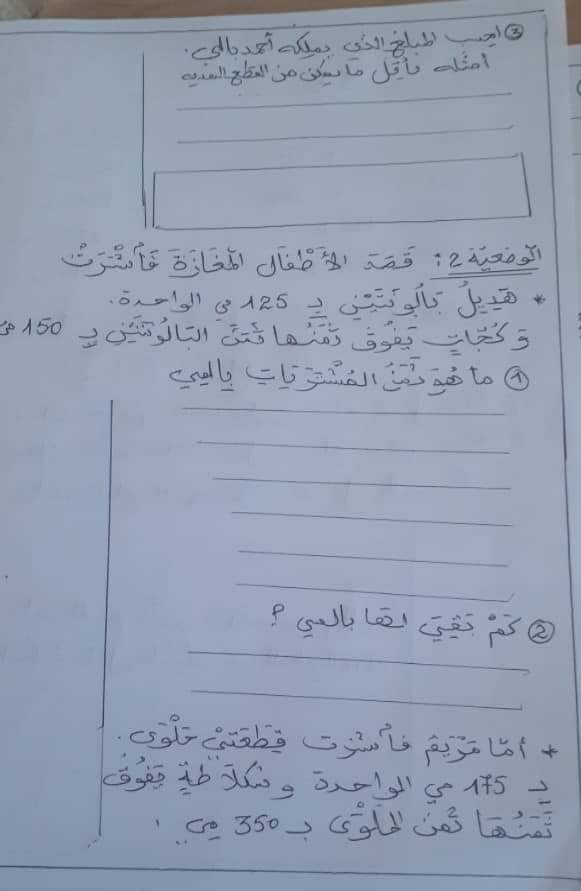 ③ احسب المبلغ الذي يملكه أحمد بالمي.
أمثله بأقل ما يمكن من القطع النقدية
الوضعية 2: قصد الأطفال المغازة فاشترت
* هديل بالونتين بـ 125 مي الواحدة.
وكجات يفوق ثمنها ثمن البالونتين بـ 150 مي
① ما هو ثمن المشتريات بالمي
② كم بقي لها بالمي؟
* أما مريم فاشترت قطعتي حلوى.
بـ 175 مي الواحدة وشكلاطة يفوق
ثمنها ثمن الحلوى بـ 350 مي.